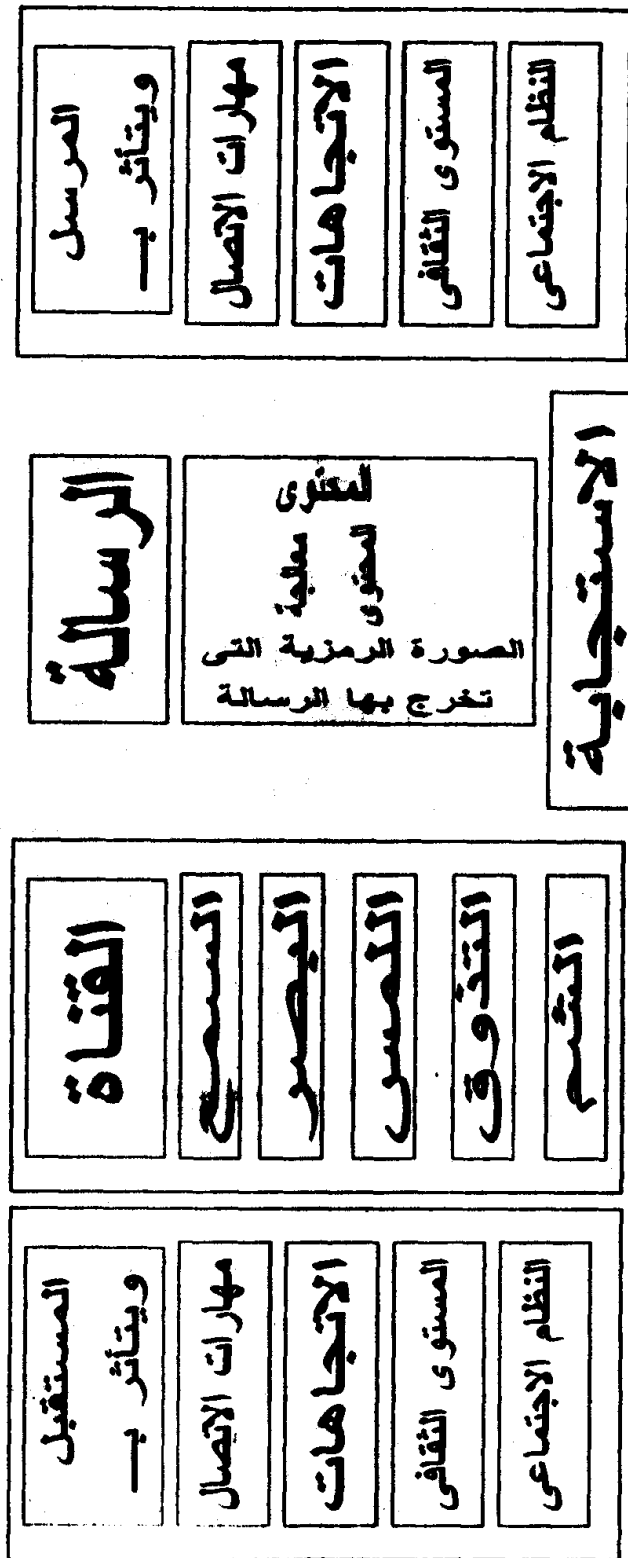 المرسل
ويتأثر بـ
مهارات الاتصال
الاتجاهات
المستوى الثقافى
النظام الاجتماعى
الرسالة
المحتوى
معالجة
المحتوى
الصورة الرمزية التى
تخرج بها الرسالة
الاستجابة
القناة
السمع
البصر
اللمس
التذوق
الشم
المستقبل
ويتأثر بـ
مهارات الاتصال
الاتجاهات
المستوى الثقافى
النظام الاجتماعى